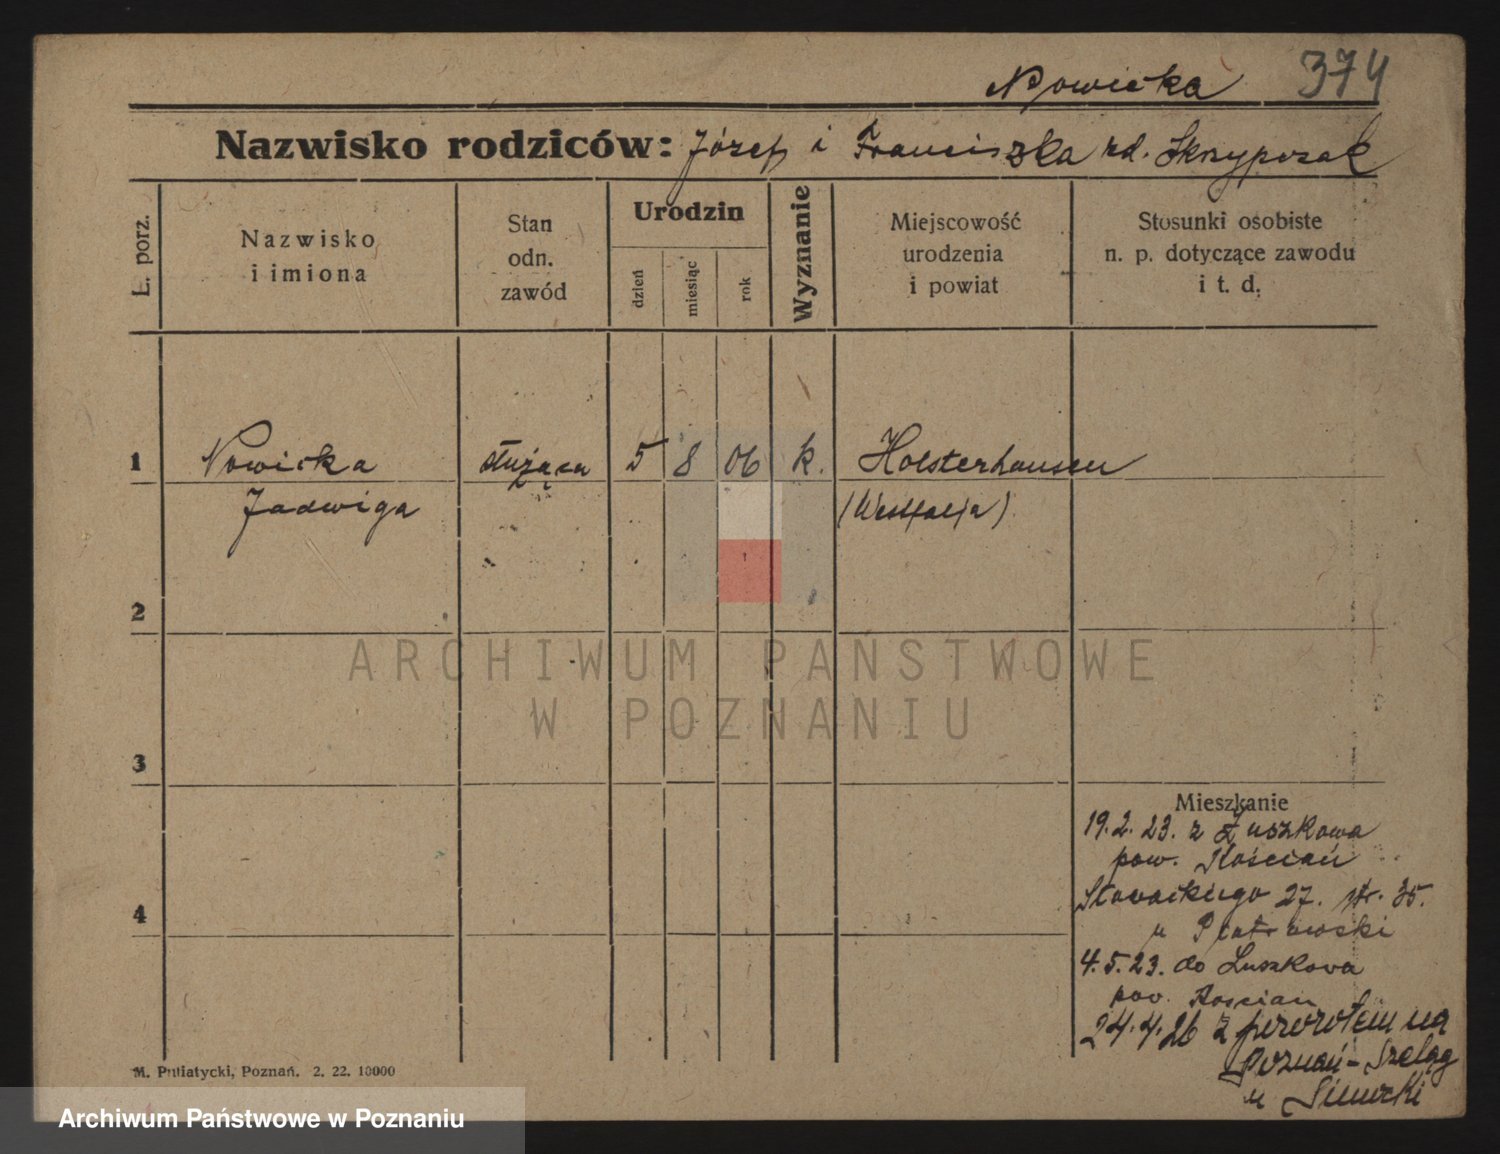 Nowicka 374
Nazwisko rodziców: Józef i Franciszka rd. Skrzypczak
L. porz.
Nazwisko
i imiona
Stan
odn.
zawód
Urodzin
dzień
miesiąc
rok
Wyznanie
Miejscowość
urodzenia
i powiat
Stosunki osobiste
n. p. dotyczące zawodu
i t. d.
1 Nowicka służąca 5 8 06 k. Holsterhausen
Jadwiga (Westfalja)
2
ARCHIWUM PAŃSTWOWE
W POZNANIU
3
Mieszkanie
19.2.23. z Łuszkowa
pow. Kościan
4 Słowackiego 27. 35.
u Piotrowski
4.5.23. do Luszkowa
pow. Koscian
24.4.26 z powrotem na
Poznań-Szeląg
u
M. Putiatycki, Poznań. 2. 22. 10000
Archiwum Państwowe w Poznaniu